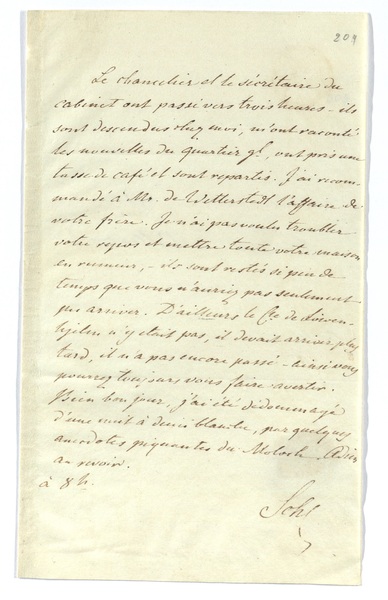 209
Le chancelier et le sécrétaire du
cabinet ont passé vers trois heures – ils
sont descendus chez moi, m'ont raconté
les nouvelles du quartier gl, ont pris une
tasse de café et sont repartis. J'ai recom-
mandé à Mr. de Wetterstedt l'affaire de
votre frère. Je n'ai pas voulu troubler
votre repos et mettre toute votre maison
en rumeur, – ils sont restés si peu de
temps que vous n'auriez pas seulement
pu arriver. D'ailleurs le Cte de Löwen-
hjelm n'y était pas, il devait arriver plus
tard, il n'a pas encore passé – ainsi vous
pourrez toujours vous faire avertir.
Bien bon jour, j'ai été dédommagé
d'une nuit à demi blanche, par quelques
anecdotes piquantes du Moloch. Adieu
au revoir.
à 8 h.
Schl